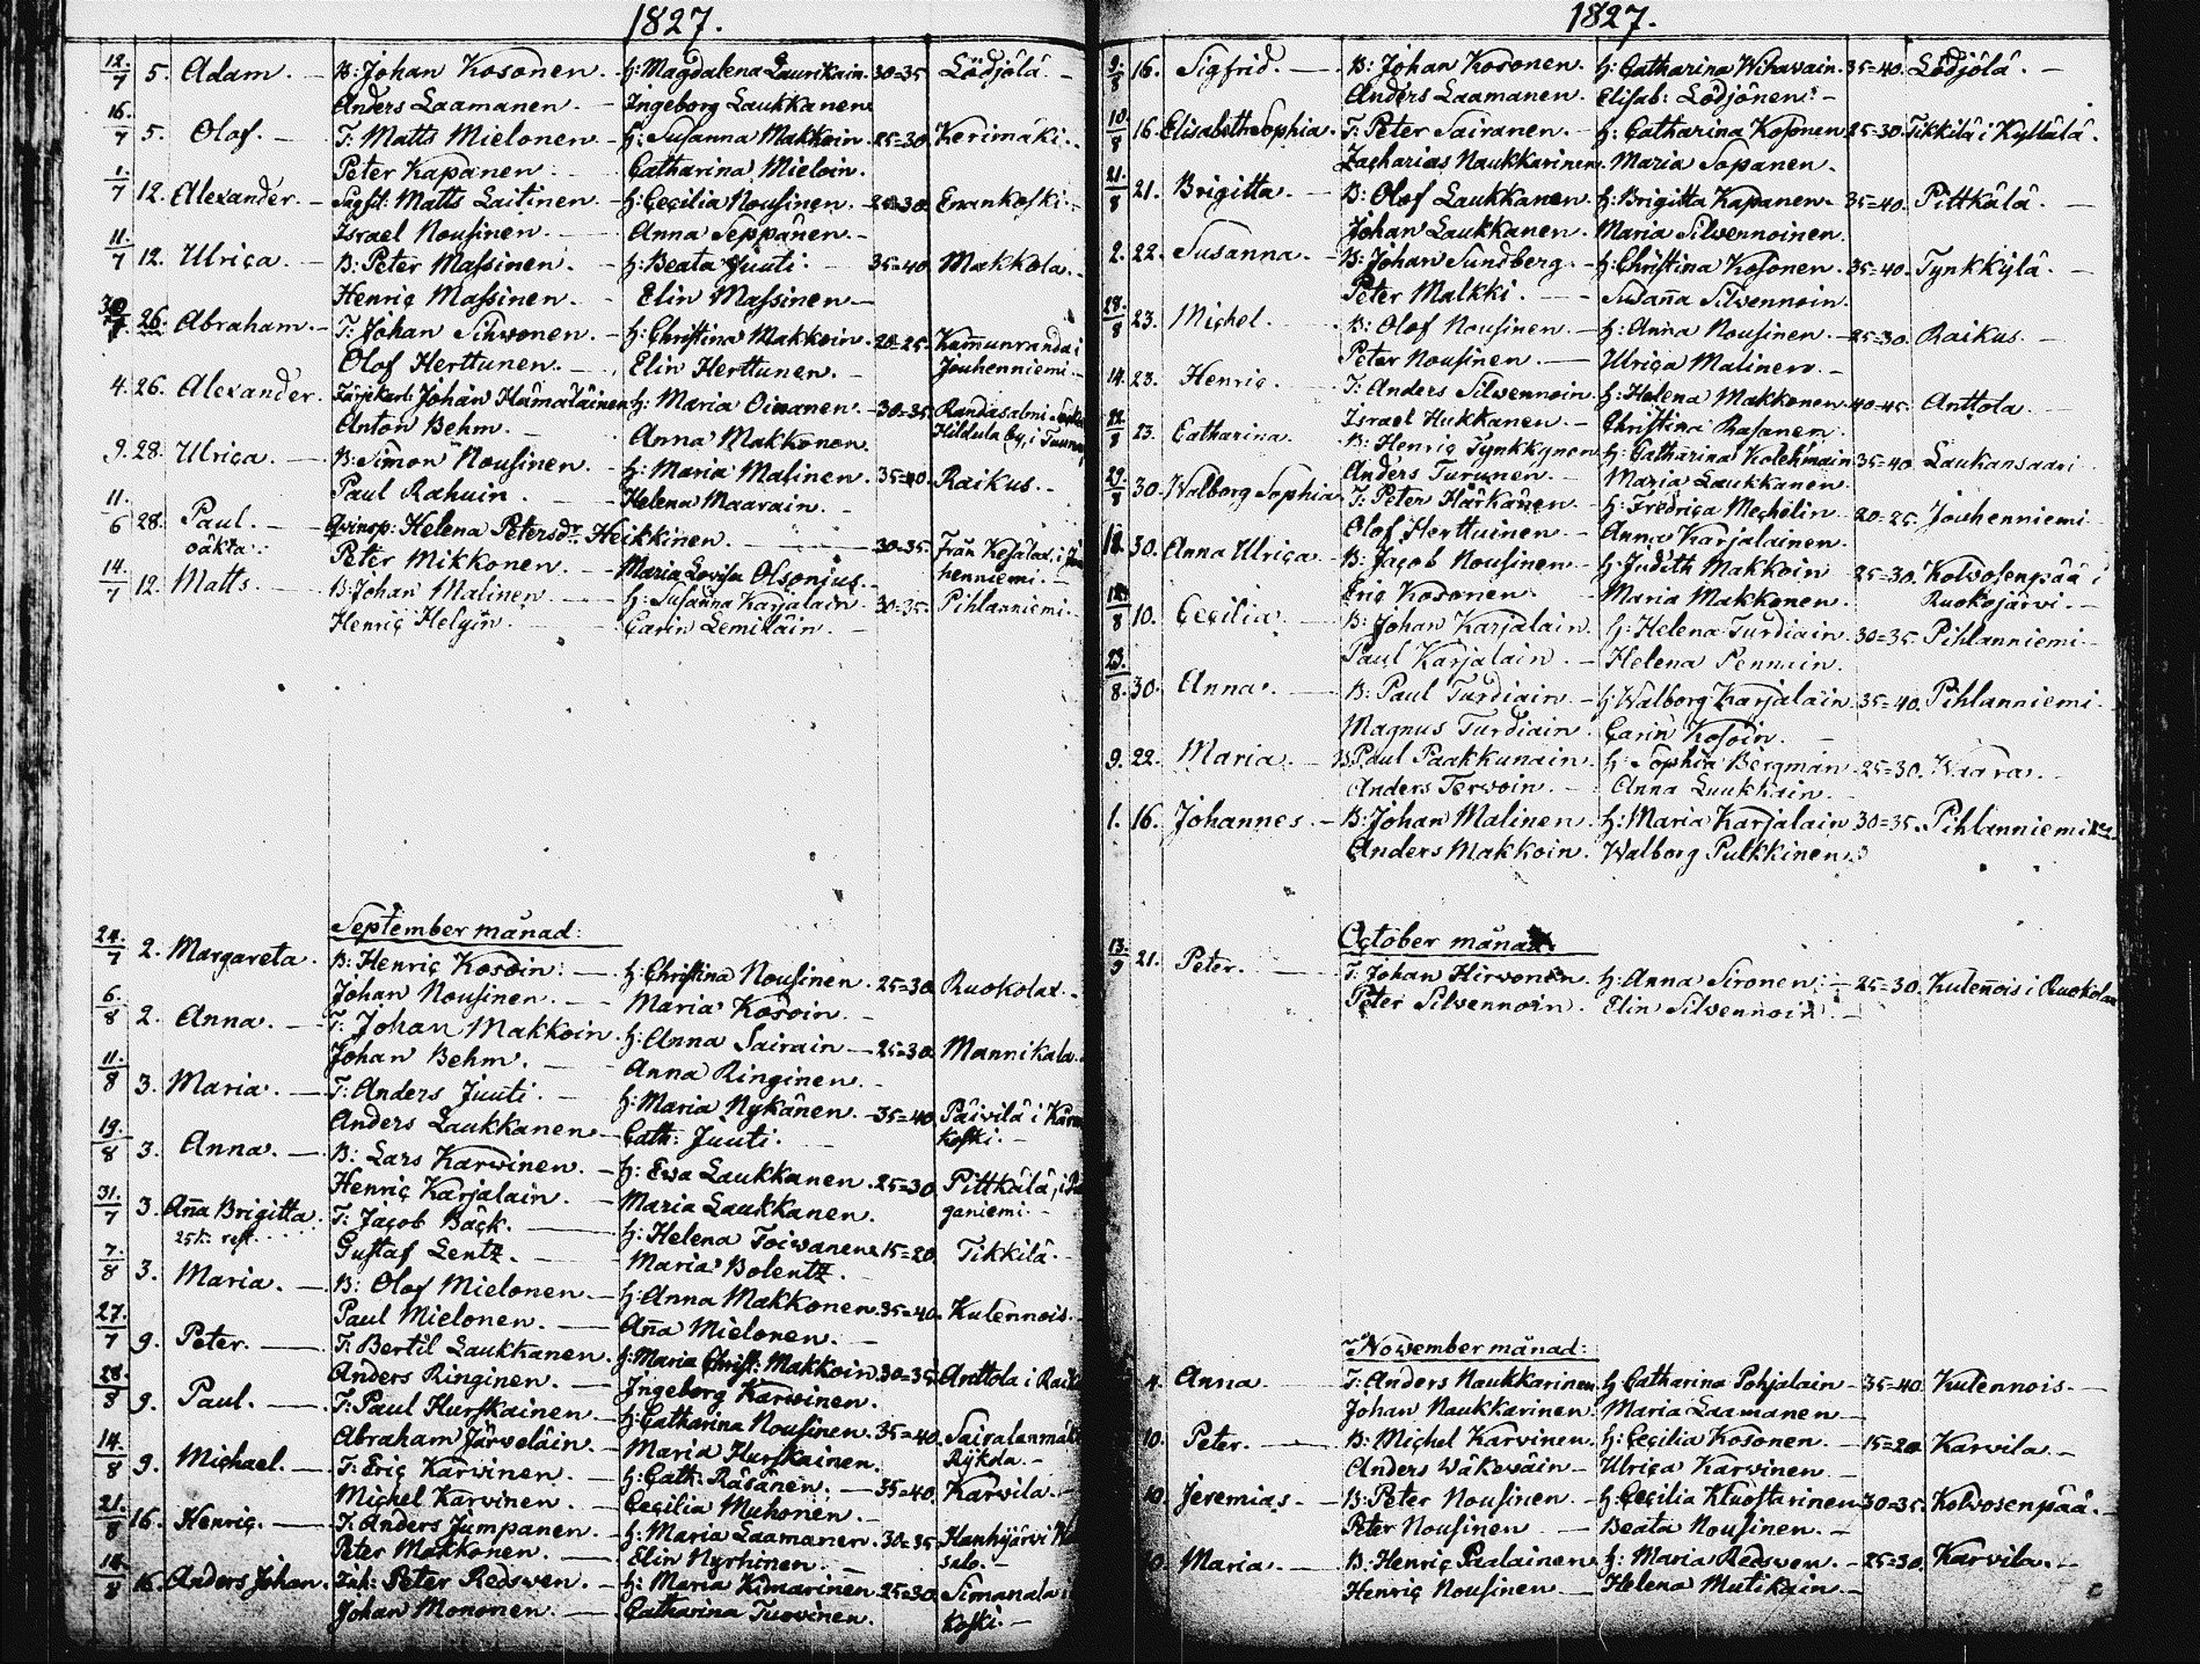 1827.
12/7 5. Adam. B: Johan Kosonen. h: Magdalena Laurikain. 30=35 Lödjölä.
Anders Laamanen. Ingeborg Laukkanen
16/7 5. Olof. T: Matts Mielonen. h: Susanna Makkoin. 25=30. Kerimäki.
Peter Kapanen. Catharina Mieloin.
1/7 12. Alexander. Matts Laitinen. h: Cecilia Nousinen. 25=30. Enankoski.
Israel Nousinen. Anna Seppänen.
11/7 12. Ulrica. B: Peter Massinen. h: Beata Juuti. 35=40. Makkola.
Henric Massinen. Elin Massinen
26. Abraham. T: Johan Silwonen. h: Christina Makkoin. 20=25. Kummunranda i
Olof Herttunen. Elin Herttunen. Jouhenniemi.
4. 26. Alexander. Johan Hämäläinen h: Maria Oinanen. 30=35. Randasalmi
Anton Behm. Anna Makkonen. Hildula by, i
9. 28. Ulrica. B: Simon Nousinen. h: Maria Malinen. 35=40. Raikus.
Paul Rahuin. Helena Maarain.
11/6 28. Paul. Qvinsp: Helena Petersdr. Heikkinen. 30=35. Från Kesälax, i
oäkta. Peter Mikkonen. Maria Lovisa Olsonius. henniemi.
14/7 12. Matts. B: Johan Malinen. h: Susanna Karjalain. 30=35. Pihlanniemi.
Henric Helyin. Carin Lemiläin.
September månad:
24/7 2. Margareta. B: Henric Kosoin. h: Christina Nousinen. 25=30. Ruokolax.
Johan Nousinen. Maria Kosoin.
6/8 2. Anna. T: Johan Makkoin. h: Anna Sairain 25=30. Mannikala.
Johan Behm. Anna Ringinen.
11/8 3. Maria. T: Anders Juuti. h: Maria Nykänen. 35=40. Päivilä i
Anders Laukkanen Cath: Juuti. koski.
19/8 3. Anna. B: Lars Karvinen. h: Ewa Laukkanen. 25=30. Pittkälä, i
Henric Karjalain. Maria Laukkanen. ganiemi.
31/7 3. Ana Brigitta. T: Jacob Bäck. h: Helena Toiwanen 15=20. Tikkilä.
25k: rest. Gustaf Lentz. Maria Bolentz.
7/8 3. Maria. B: Olof Mielonen. h: Anna Makkonen. 35=40. Kutennois.
Paul Mielonen. Ana Mielonen.
27/7 9. Peter. T: Bertil Laukkanen. h: Maria Christ: Makkoin 30=35. Anttola i
Anders Ringinen. Ingeborg Karvinen.
28/8 9. Paul. T: Paul Hurskainen. h: Catharina Nousinen. 35=40.
Abraham Järveläin. Maria Hurskainen. Rykola.
14/8 9. Michael. T: Eric Karvinen. h: Cath: Räsänen. 35=40. Karvila.
Michel Karvinen. Cecilia Muhonen.
21/8 16. Henric. T: Anders Jumpanen. h: Maria Laamanen. 30=35 Hanhijärvi
Peter Makkonen. Elin Nyrhinen. salo.
14/8 16. Anders Johan. Inh: Peter Redswen. h: Maria Kimarinen 25=30. Simanala
Johan Mononen. Catharina Tuovinen. koski.
1827.
9/8 16. Sigfrid. B: Johan Kosonen. h: Catharina Wihavain. 35=40. Lödjölä.
Anders Laamanen. Elisab: Lödjönen.
10/8 16. Elisabeth Sophia. T: Peter Sairanen. h: Catharina Kosonen 25=30. Tikkilä i Kyllälä.
Zacharias Naukkarinen. Maria Sopanen.
21/8 21. Brigitta. B: Olof Laukkanen. h: Brigitta Kapanen. 35=40. Pittkälä.
Johan Laukkanen. Maria Silwennoinen.
2. 22. Susanna. B: Johan Sundberg. h: Christina Kosonen. 35=40. Tynkkylä.
Peter Malkki. Susana Silwennoin.
28/8 23. Michel. B: Olof Nousinen. h: Anna Nousinen. 25=30. Raikus.
Peter Nousinen. Ulrica Malinen.
14. 23. Henric. T: Anders Silwennoin. h: Helena Makkonen. 40=45. Anttola.
Israel Hukkanen. Christina Rasanen.
22/8 23. Catharina. B: Henric Tynkkynen h: Catharina Kolehmain 35=40. Laukansaari
Anders Turunen. Maria Laukkanen.
29/8 30. Walborg Sophia. T: Peter Härkänen. h: Fredrica Mechelin. 20=25. Jouhenniemi.
Olof Herttuinen. Anna Karjalainen.
12. 30. Anna Ulrica. B: Jacob Nousinen. h: Judith Makkoin 25=30. Kolwosenpää i
Eric Kosonen. Maria Makkonen. Ruokojärvi.
12/8 10. Cecilia. B: Johan Karjalain. h: Helena Turdiain. 30=35. Pihlanniemi.
Paul Karjalain. Helena Pennain.
23/8. 30. Anna. B: Paul Turdiain. h: Walborg Karjalain 35=40. Pihlanniemi.
Magnus Turdiain. Carin Kosoin.
9. 22. Maria. B: Paul Paakkunain. h: Sophia Bergman 25=30. Waara.
Anders Tervoin. Anna Luukkain.
1. 16. Johannes. B: Johan Malinen. h: Maria Karjalain 30=35. Pihlanniemi
Anders Makkoin. Walborg Pulkkinen.
October månad.
13/9 21. Peter. T: Johan Hirvonen. h: Anna Sironen. 25=30. Kutennois i Ruokolax
Peter Silvennoin. Elin Silvennoin.
November månad:
4. Anna. T: Anders Naukkarinen h: Catharina Pohjalain 35=40. Kutennois.
Johan Naukkarinen. Maria Laamanen
10. Peter. B: Michel Karvinen. h: Cecilia Kosonen. 15=20. Karvila.
Anders Wäkeväin Ulrica Karvinen.
10. Jeremias. B: Peter Nousinen. h: Cecilia Kluostarinen 30=35. Kolvosenpää.
Peter Nousinen Beata Nousinen.
10. Maria. B: Henric Paalainen h: Maria Redswen. 25=30. Karvila.
Henric Nousinen. Helena Mutikain.